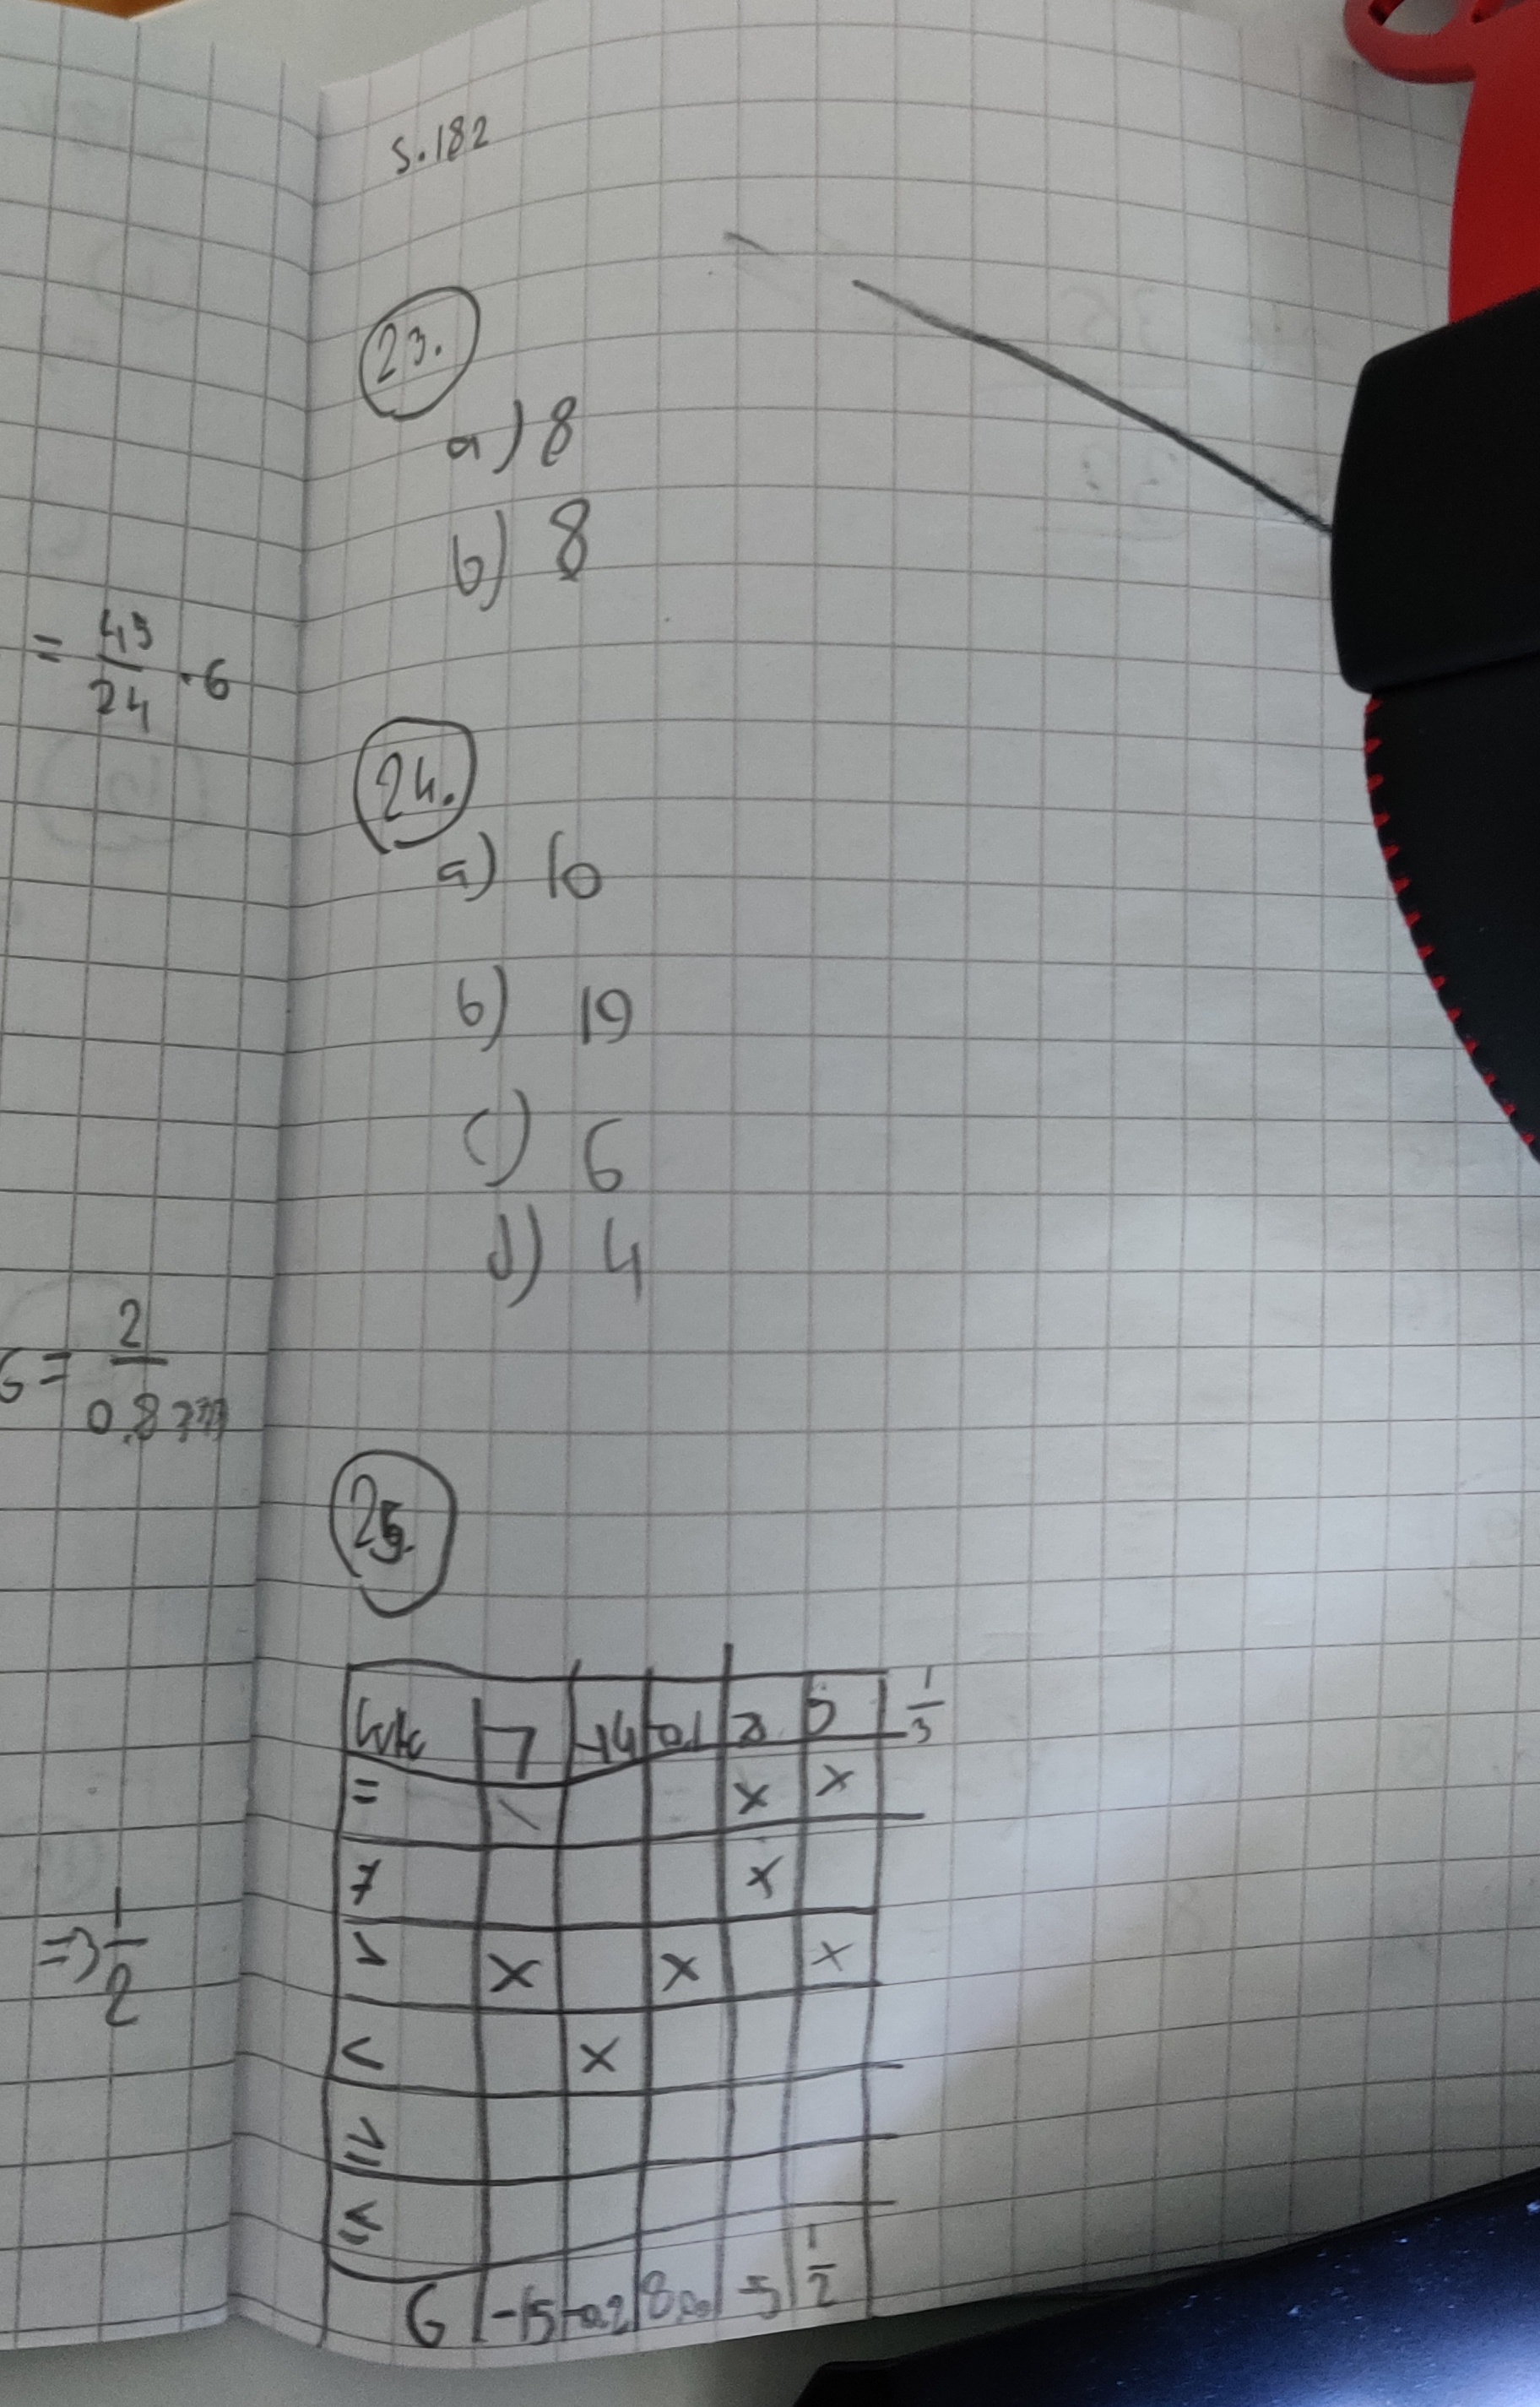 = 45/24 · 6
= 2/0.8
=> 1/2
S. 182
23.
a) 8
b) 8
24.
a) 10
b) 19
c) 6
d) 4
25.
7 -14 -0,1 8 5 1/3
= \ x x
≠ x
> x x x
< x
≥
≤
6 -15 -0,2 8,00 -5 1/2